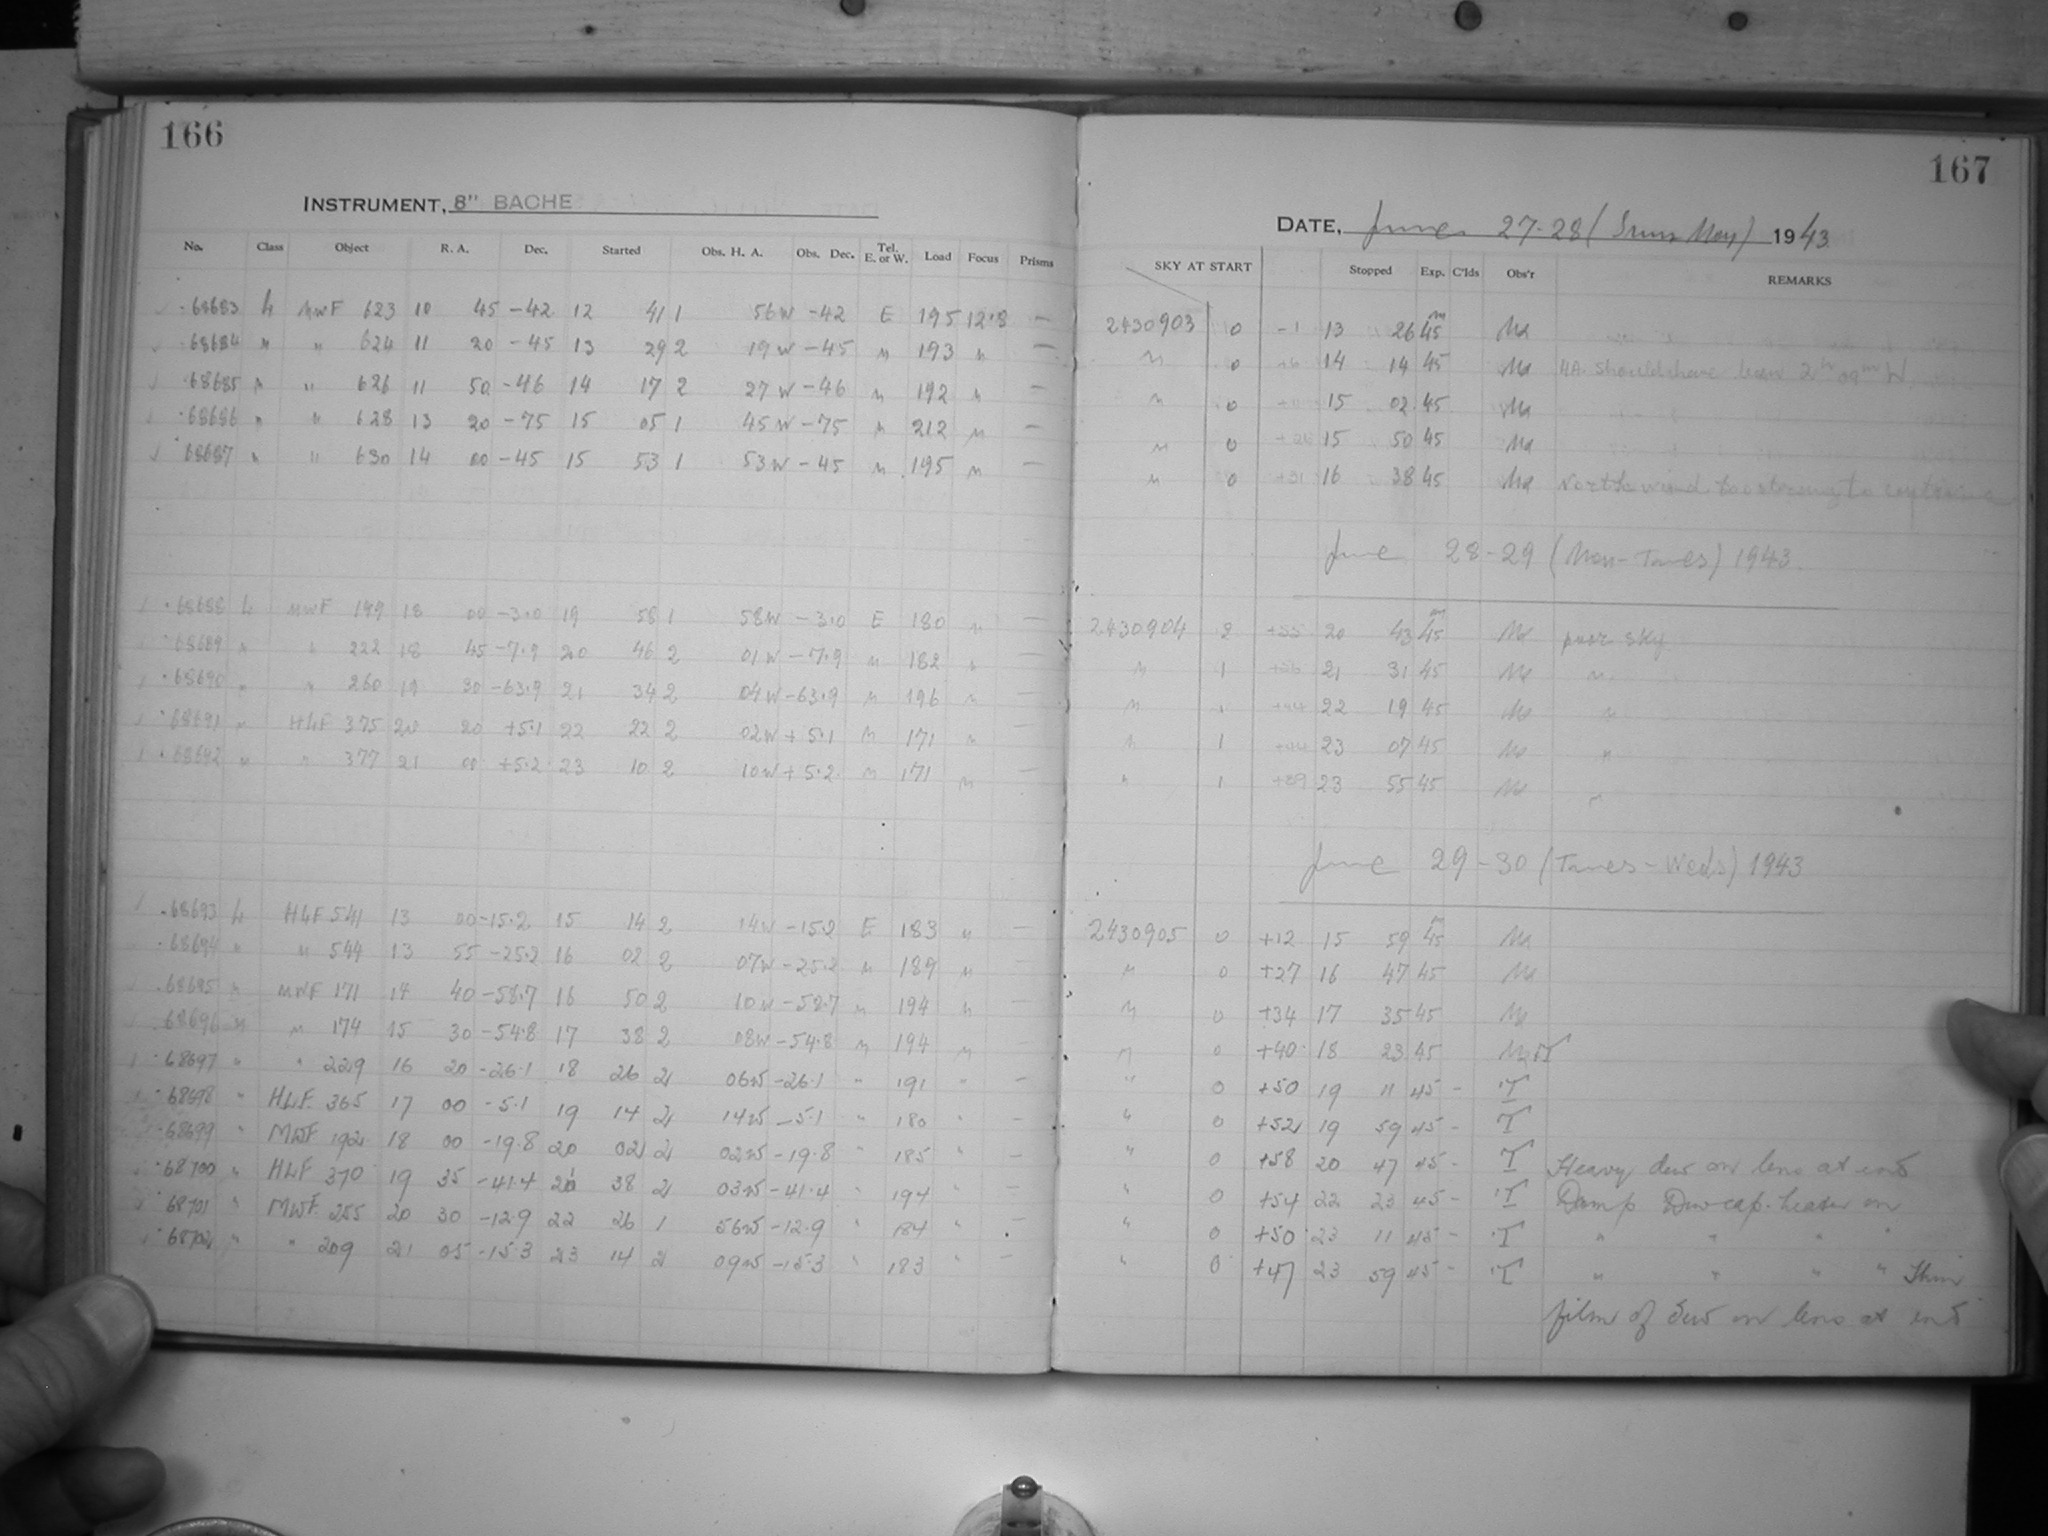 166
INSTRUMENT, 8" BACHE
No. Class Object R. A. Dec. Started Obs. H. A. Obs. Dec. Tel. E. or W. Load Focus Prisms
68683 L MWF 623 10 45 -42 12 41 1 56W -42 E 195 12.8 —
68684 " " 624 11 20 -45 13 29 2 19W -45 " 193 " —
68685 " " 626 11 50 -46 14 17 2 27W -46 " 192 " —
68686 " " 628 13 20 -75 15 05 1 45W -75 " 212 " —
68687 " " 630 14 00 -45 15 53 1 53W -45 " 195 " —
68688 L MWF 149 18 00 -3.0 19 58 1 58W -3.0 E 180 " —
68689 " " 222 18 45 -7.9 20 46 2 01W -7.9 " 182 " —
68690 " " 260 19 30 -63.9 21 34 2 04W -63.9 " 196 " —
68691 " HLF 375 20 20 +5.1 22 22 2 02W +5.1 " 171 " —
68692 " " 377 21 00 +5.2 23 10 2 10W +5.2 " 171 " —
68693 L HLF 541 13 00 -15.2 15 14 2 14W -15.2 E 183 " —
68694 " " 544 13 55 -25.2 16 02 2 07W -25.2 " 189 " —
68695 " MWF 171 14 40 -58.7 16 50 2 10W -58.7 " 194 " —
68696 " " 174 15 30 -54.8 17 38 2 08W -54.8 " 194 " —
68697 " " 229 16 20 -26.1 18 26 2 06W -26.1 " 191 " —
68698 " HLF. 365 17 00 -5.1 19 14 2 14W -5.1 " 180 " —
68699 " MWF 192 18 00 -19.8 20 02 2 02W -19.8 " 185 " —
68700 " HLF 370 19 35 -41.4 38 2 03W -41.4 " 194 " —
68701 " MWF. 255 20 30 -12.9 22 26 1 56W -12.9 " 184 " —
68702 " " 209 21 05 -15.3 23 14 2 09W -15.3 " 183 " —
167
DATE, June 27-28 (Sun-Mon) 1943
SKY AT START Stopped Exp. C'lds Obs'r REMARKS
2430903 0 -1 13 26 45m Ma
" 0 14 14 45 Ma HA. should have been 2h 09m W.
" 0 15 02 45 Ma
" 0 15 50 45 Ma
" 0 +31 16 38 45 Ma North wind too strong to continue
June 28-29 (Mon-Tues) 1943.
2430904 2 20 43 45m Ma poor sky
" 1 21 31 45 Ma "
" 1 22 19 45 Ma "
" 1 23 07 45 Ma "
" 1 +39 23 55 45 Ma "
June 29-30 (Tues-Weds) 1943
2430905 0 +12 15 59 45m Ma
" 0 +27 16 47 45 Ma
" 0 +34 17 35 45 Ma
" 0 +40 18 23 45
" 0 +50 19 11 45 - T
" 0 +52 19 59 45 - T
" 0 +58 20 47 45 - T Heavy dew on lens at end
" 0 +54 22 23 45 - T Damp Dewcap heater on
" 0 +50 23 11 45 - T " " " "
" 0 +47 23 59 45 - T " " " " Thin
film of dew on lens at end